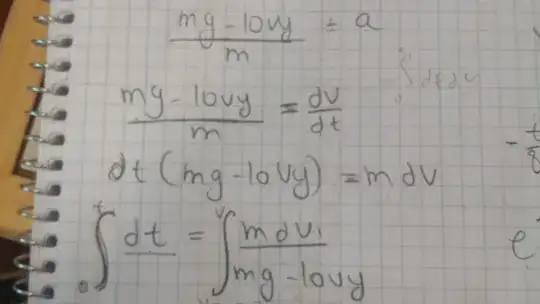 mg-10vy / m = a
mg-10vy / m = dv / dt
dt (mg-10vy) = m dv
∫₀ᵗ dt = ∫ᵛ m dv₁ / mg-10vy
- t
e